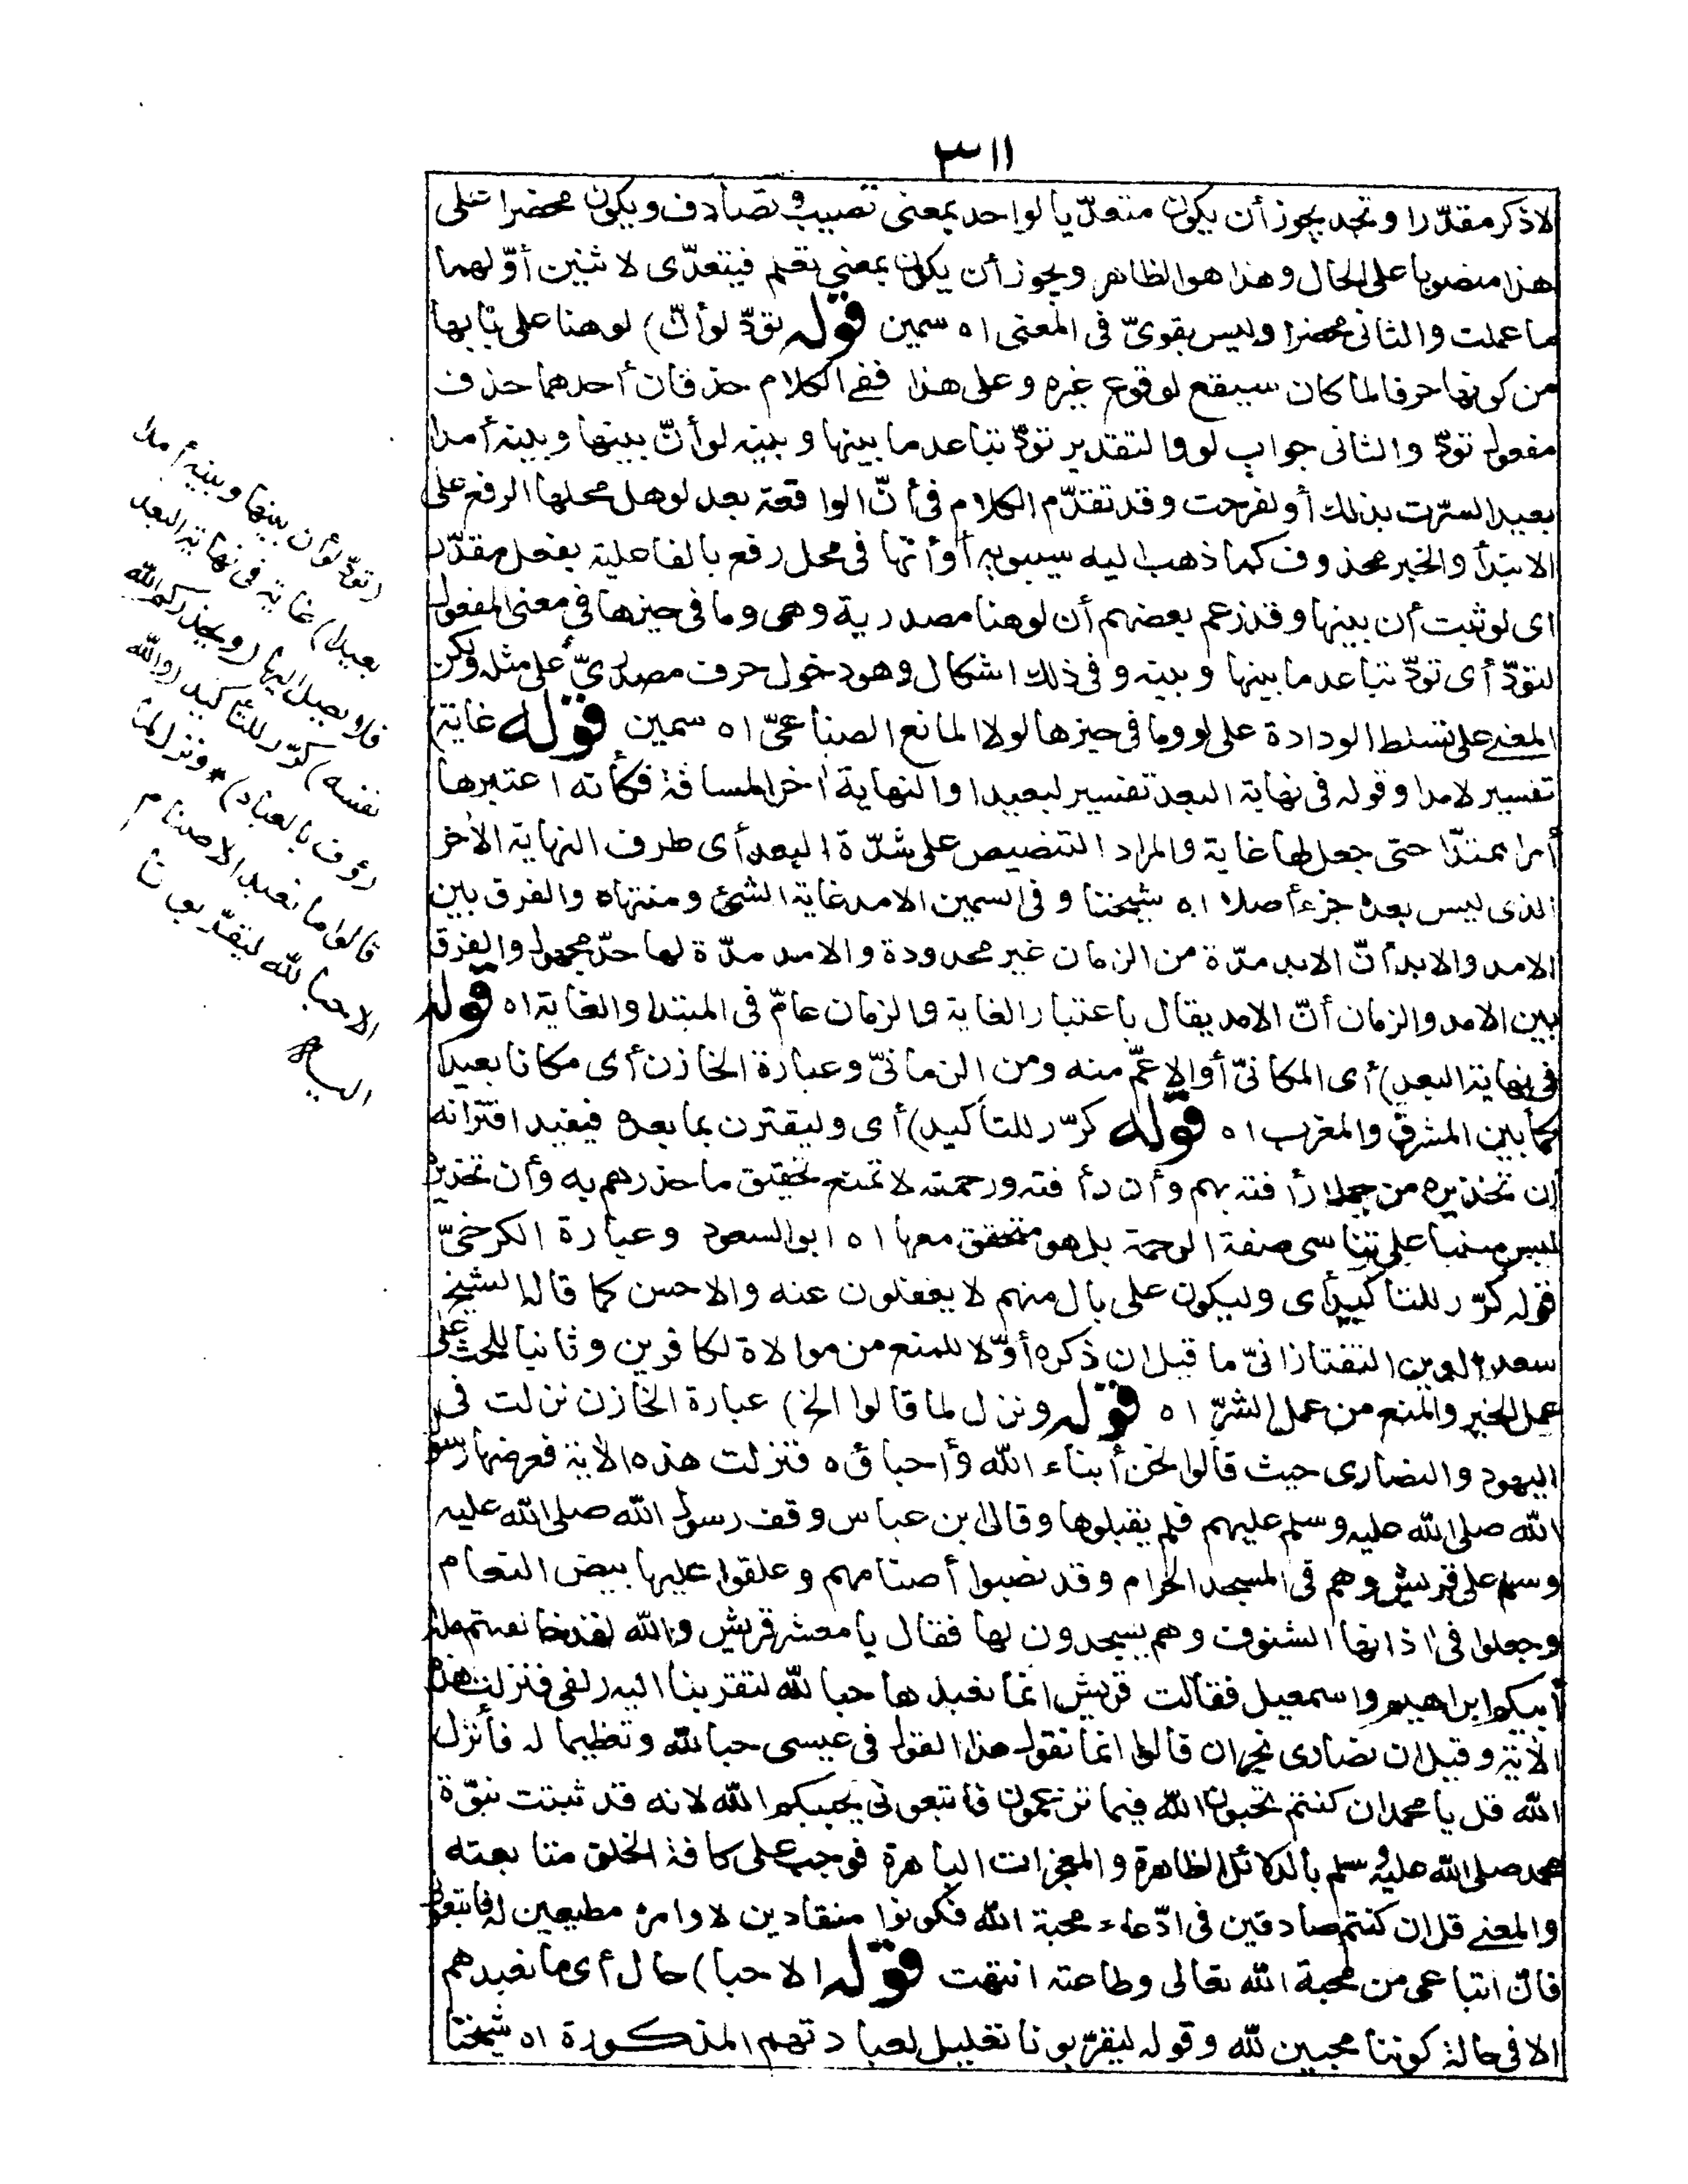 ٣١١
لاذكر مقدّرا وتجد يجوز أن يكون متعدّيا لواحد بمعنى تصيب وتصادف ويكون محضرا على
هذا منصوبا على الحال وهذا هو الظاهر ويجوز أن يكون بمعنى تعلم فيتعدّى لاثنين أوّلهما
ما عملت والثانى محضرا وليس بقوىّ فى المعنى اه سمين قوله تودّ لو أنّ) لو هنا على بابها
من كونها حرفا لما كان سيقع لوقوع غيره وعلى هذا ففى الكلام حذفان أحدهما حذف
مفعول تودّ والثانى جواب لو والتقدير تودّ تباعد ما بينها وبينه لو أنّ بينها وبينه أمدا
بعيدا لسرّت بذلك أو لفرحت وقد تقدّم الكلام فى أنّ الواقعة بعد لو هل محلها الرفع على
الابتدأ والخبر محذوف كما ذهب اليه سيبويه أو أنها فى محل رفع بالفاعلية بفعل مقدّر
اى لو ثبت أن بينها وقد زعم بعضهم أن لو هنا مصدرية وهى وما فى حيزها فى معنى المفعول
لتودّ أى تودّ تباعد ما بينها وبينه وفى ذلك اشكال وهو دخول حرف مصدرىّ على مثله ولكن
المعنى على تسلط الودادة على لو وما فى حيزها لولا المانع الصناعىّ اه سمين قوله غاية)
تفسير لامدا وقوله فى نهاية البعد تفسير لبعيدا والنهاية اخر المسافة فكأنه اعتبرها
أمرا ممتدّا حتى جعل لها غاية والمراد التنصيص على شدّة البعد أى طرف النهاية الاخر
الذى ليس بعده جزء أصلا اه شيخنا وفى السمين الامد غاية الشئ ومنتهاه والفرق بين
الامد والابد أنّ الابد مدّة من الزمان غير محدودة والامد مدّة لها حدّ مجهول والفرق
بين الامد والزمان أنّ الامد يقال باعتبار الغاية والزمان عامّ فى المبتدا والغاية اه قوله
فى نهاية البعد) أى المكانىّ أو الاعمّ منه ومن الزمانىّ وعبارة الخازن أى مكانا بعيدا
كما بين المشرق والمغرب اه قوله كرّر للتأكيد) أى وليقترن بما بعده فيفيد اقترانه
ان تحذيره من جملة رأفته بهم وأن رأفته ورحمته لا تمنع تحقيق ما حذرهم به وأن تحذيره
ليس مبنيا على تناسى صفة الرحمة بل هو متحقق معها اه ابو السعود وعبارة الكرخىّ
قوله كرّر للتأكيد أى وليكون على بال منهم لا يغفلون عنه والاحسن كما قاله الشيخ
سعد الدين التفتازانىّ ما قيل ان ذكره أوّلا للمنع من موالاة الكافرين وثانيا للحث على
عمل الخير والمنع من عمل الشرّ اه قوله ونزل لما قالوا الخ) عبارة الخازن نزلت فى
اليهود والنصارى حيث قالوا نحن أبناء الله وأحباؤه فنزلت هذه الاية فعرضها رسول
الله صلى الله عليه وسلم عليهم فلم يقبلوها وقال ابن عباس وقف رسول الله صلى الله عليه
وسلم على قريش وهم فى المسجد الحرام وقد نصبوا أصنامهم وعلقوا عليها بيض النعام
وجعلوا فى اذانها الشنوف وهم يسجدون لها فقال يا معشر قريش والله لقد خالفتم ملة
أبيكم ابراهيم واسمعيل فقالت قريش انما نعبدها حبا لله لتقربنا اليه زلفى فنزلت هذه
الاية وقيل ان نصارى نجران قالوا انما نقول هذا القول فى عيسى حبا لله وتعظيما له فأنزل
الله قل يا محمد ان كنتم تحبون الله فيما تزعمون فاتبعونى يحببكم الله لانه قد ثبتت نبوّة
محمد صلى الله عليه وسلم بالدلائل الظاهرة والمعجزات الباهرة فوجب على كافة الخلق متابعته
والمعنى قل ان كنتم صادقين فى ادّعاء محبة الله فكونوا منقادين لاوامره مطيعين له فاتبعونى
فانّ اتباعى من محبة الله تعالى وطاعته انتهت قوله الا حبا) حال أى ما نعبدهم
الا فى حالة كوننا محبين لله وقوله ليقرّبونا تعليل لعبادتهم المذكورة اه شيخنا
(تودّ لو أن بينها وبينه أمدا
بعيدا) غاية فى نهاية البعد
فلا يصل اليها (ويحذركم الله
نفسه) كرّر للتأكيد (والله
رؤف بالعباد) * ونزل لما
قالوا ما نعبد الاصنام
الا حبا لله ليقرّبونا
اليه